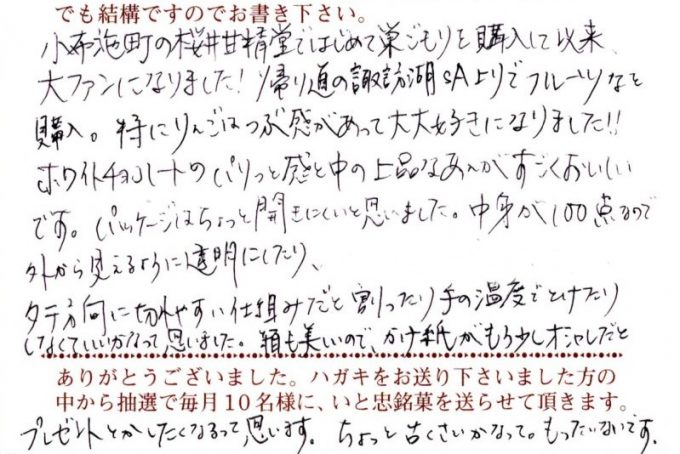 でも結構ですのでお書き下さい。
小布施町の桜井甘精堂ではじめて巣ごもりを購入して以来、
大ファンになりました！帰り道の諏訪湖SA上りでフルーツなど
購入。特にりんごはつぶ感があって大大好きになりました!!
ホワイトチョコレートのパリっと感と中の上品なあんがすごくおいしい
です。パッケージはちょっと開きにくいと思いました。中身が100点なので
外から見えるように透明にしたり、
タテ方向に切れやすい仕組みだと割ったり手の温度でとけたり
しなくていいかなって思いました。箱も美しいので、かけ紙がもう少しオシャレだと
ありがとうございました。ハガキをお送り下さいました方の
中から抽選で毎月10名様に、いと忠銘菓を送らせて頂きます。
プレゼントとかしたくなるって思います。ちょっと古くさいかなって。もったいないです。